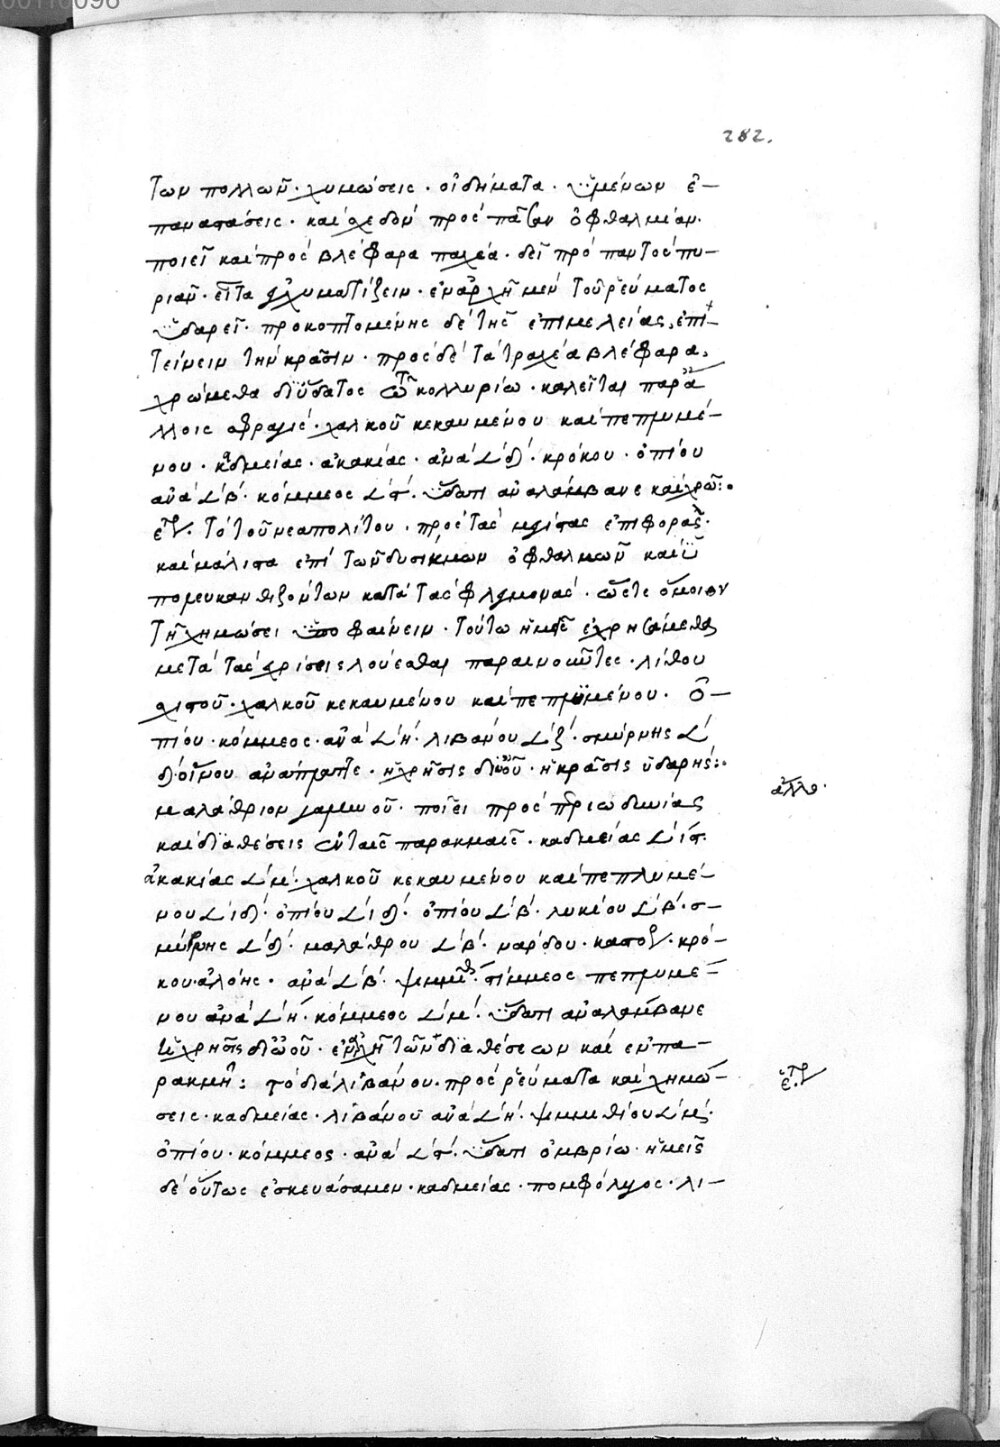 282.
των πολλῶν· χυμώσεις· οἰδήματα· ὑμένων ἐ-
παναστάσεις· καὶ σχεδὸν πρὸς πᾶσαν ὀφθαλμίαν·
ποιεῖ καὶ πρὸς βλέφαρα παχέα· δεῖ πρὸ παντὸς πυ-
ριᾶν· εἶτα ἐγχυματίζειν· ἐν ἀρχῇ μὲν τοῦ ῥεύματος
ὑδαρεῖ· προκοπτομένης δὲ τῆς ἐπιμελείας, ἐπι-
τείνειν τὴν κρᾶσιν· πρὸς δὲ τὰ τραχέα βλέφαρα,
χρώμεθα δι' ὕδατος τῷ κολλυρίω· καλεῖται παρ' ἄ
λλοις σφραγίς· χαλκοῦ κεκαυμένου καὶ πεπλυμέ-
νου· καδμείας· ἀκακίας· ἀνὰ 𐅻 δ· κρόκου· ὀπίου
ἀνὰ 𐅻 β· κόμμεος 𐅻 ϛ· ὕδατι ἀναλάμβανε καὶ χρῶ:·
τὸ τοῦ νεαπολίτου· πρὸς τὰς μεγίστας ἐπιφοράς·
καὶ μάλιστα ἐπὶ τῶν δυσκινήτων ὀφθαλμῶν καὶ ὑ
πομευκανθιζόντων κατὰ τὰς φλεγμονάς· ὥστε ὅμοιον
τῇ χημώσει ὑποφαίνειν· τούτω ἡμεῖς ἐχρησάμεθα
μετὰ τὰς χρίσεις λούεσθαι παραινοῦντες· λίθου
σχιστοῦ· χαλκοῦ κεκαυμένου καὶ πεπλυμένου· ὀ-
πίου· κόμμεος· ἀνὰ 𐅻 η· λιβάνου 𐅻 ζ· σμύρνης 𐅻
δ· οἴνου ἀναπλάττε· ἡ χρῆσις δι' ὠοῦ· ἡ κρᾶσις ὑδαρής:·
ἄλλο·
μαλάθριον γαμινοῦ· ποιεῖ πρὸς περιωδυνίας
καὶ διαθέσεις ἐν ταῖς παρακμαῖς· καδμείας 𐅻 ιϛ·
ἀκακίας 𐅻 μ· χαλκοῦ κεκαυμένου καὶ πεπλυμέ-
νου 𐅻 ιδ· ὀπίου 𐅻 ιδ· ὀπίου 𐅻 β· λυκίου 𐅻 β· σ-
μύρνης 𐅻 δ· μαλάθρου 𐅻 β· νάρδου· καστορ· κρό-
κου· ἀλόης· ἀνὰ 𐅻 β· ψιμμιθ· στίμμεος πεπλυμέ-
νου ἀνὰ 𐅻 η· κόμμεος 𐅻 μ· ὕδατι ἀναλάμβανε
ἡ χρῆσις δι' ὠοῦ· ἐν ἀρχῇ τῶν διαθέσεων καὶ ἐν πα-
ρακμῇ: τὸ διὰ λιβάνου· πρὸς ῥεύματα καὶ χημώ-
σεις· καδμείας· λιβάνου ἀνὰ 𐅻 η· ψιμμιθίου 𐅻 μ·
ὀπίου· κόμμεος· ἀνὰ 𐅻 ϛ· ὕδατι ὀμβρίω· ἡμεῖς
δὲ οὕτως ἐσκευάσαμεν· καδμείας· πομφόλυγος· λι-